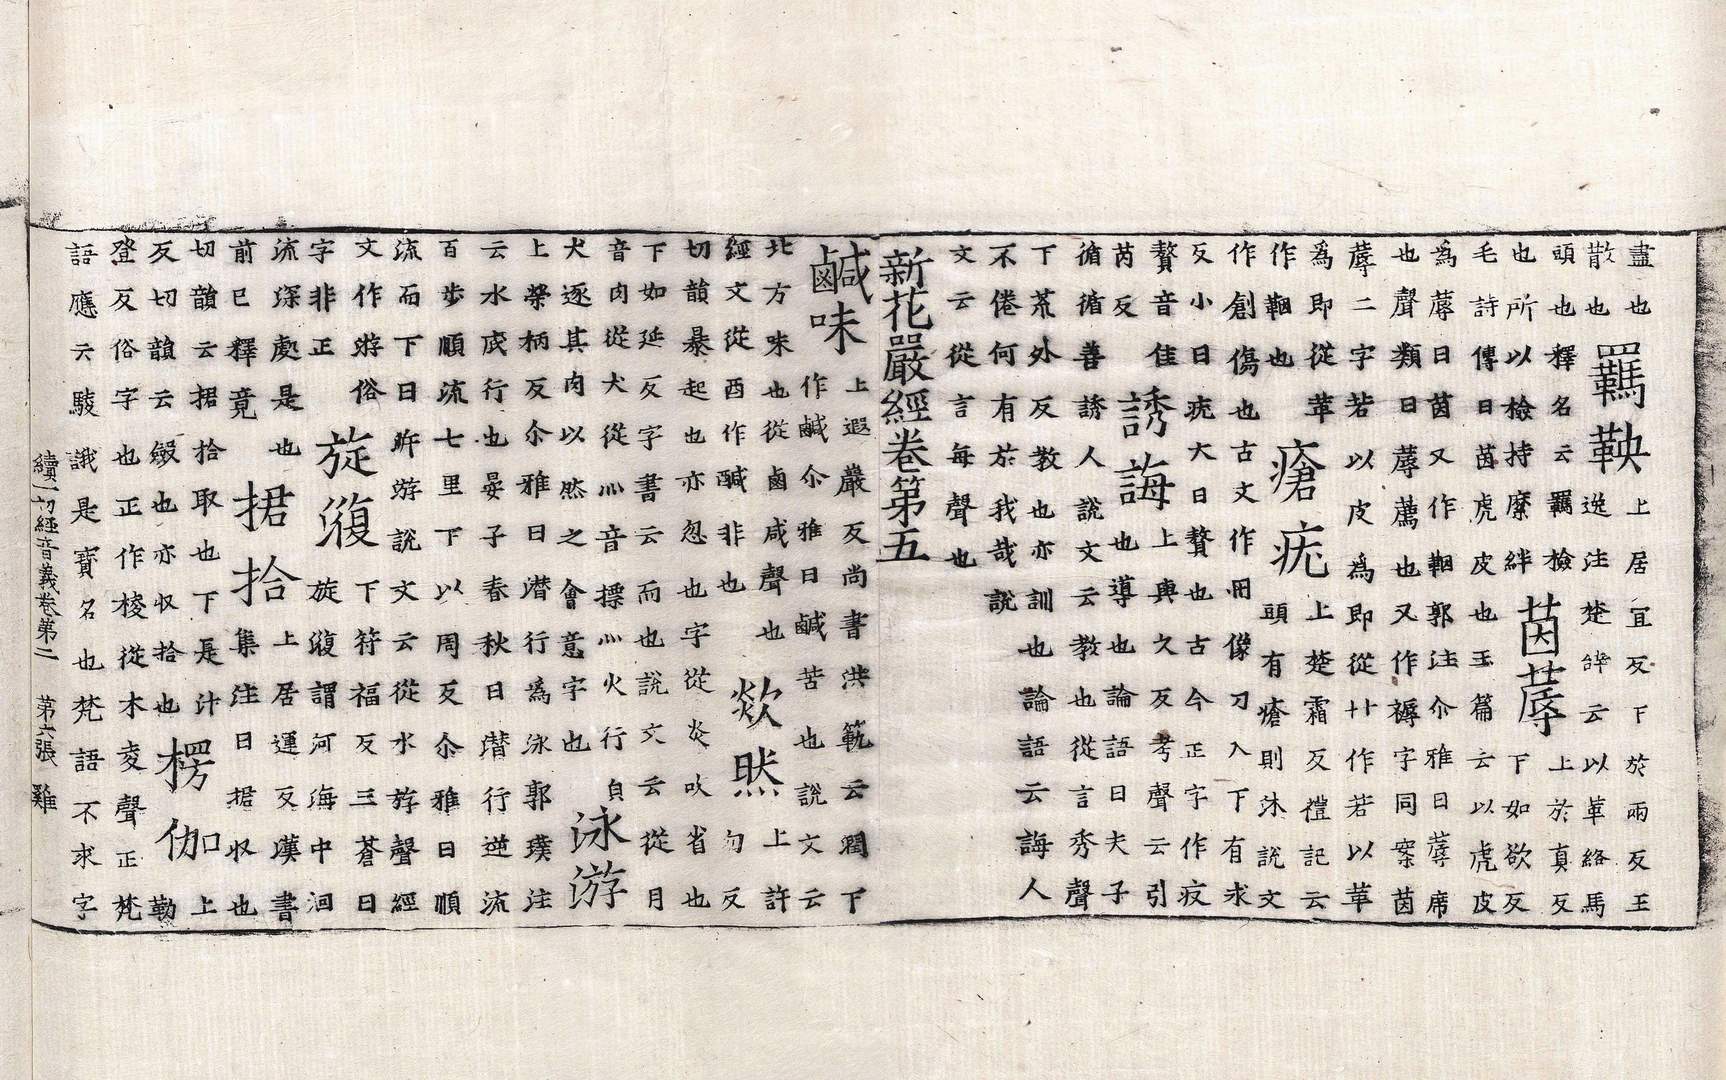 盡也
散也
羈鞅
上居宜反下於兩反王
逸注楚辞云以革絡馬
頭也釋名云羈檢
也所以檢持縻絆
茵蓐
上於真反
下如欲反
毛詩傳曰茵虎皮也玉篇云以虎皮
為蓐曰茵又作鞇郭注尒雅曰蓐席
也聲類曰蓐薦也又作褥字同案茵
蓐二字若以皮為即從卄作若以革
為即從革
作鞇也
瘡疣
上楚霜反禮記云
頭有瘡則沐說文
作創傷也古文作刅像刀入下有求
反小曰疣大曰贅也古今正字作疚
贅音佳
芮反
誘誨
上與久反考聲云引
也導也論語曰夫子
循循善誘人說文云教也從言秀聲
下荒外反教也亦訓也論語云誨人
不倦何有於我哉說
文云從言每聲也
新花嚴經卷第五
鹹味
上遐巖反尚書洪範云潤下
作鹹尒雅曰鹹苦也說文云
北方味也從鹵咸聲也
經文從酉作醎非也
欻然
上許
勿反
切韻暴起也亦忽也字從炎炎吹省也
下如延反字書云而也說文云從月
音肉從犬從灬音摽灬火行皃
犬逐其肉以然之會意字也
泳游
上榮柄反尒雅曰潛行為泳郭璞注
云水底行也晏子春秋曰潛行逆流
百步順流七里下以周反尒雅曰順
流而下曰泝游說文云從水斿聲經
文作遊俗
字非正
旋澓
下符福反三蒼曰
旋澓謂河海中洄
流深處是也
前已釋竟
捃拾
上居運反漢書
集注曰捃收也
切韻云捃拾取也下是汁
反切韻云斂也亦收拾也
楞伽
上
勒
登反俗字也正作棱從木夌聲正梵
語應云駿誐是寶名也梵語不求字
續一切經音義卷第二 第六張 雞